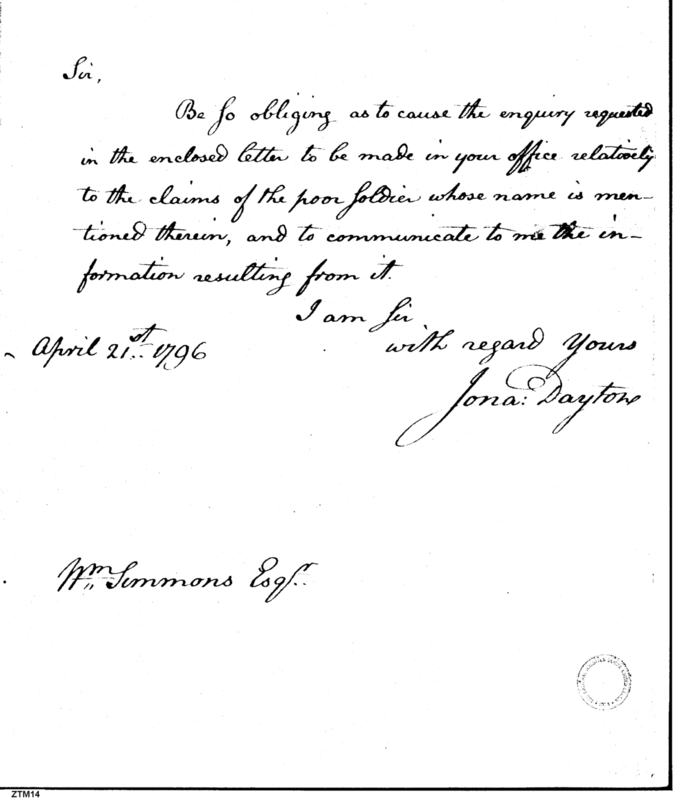 Sir,
Be so obliging as to cause the enquiry requested
in the enclosed letter to be made in your office relatively
to the claims of the poor soldier whose name is men-
tioned therein, and to communicate to me the in-
formation resulting from it.
I am Sir
with regard Yours
April 21st. 1796
Jona: Dayton
Wm Simmons Esqr.
ZTM14